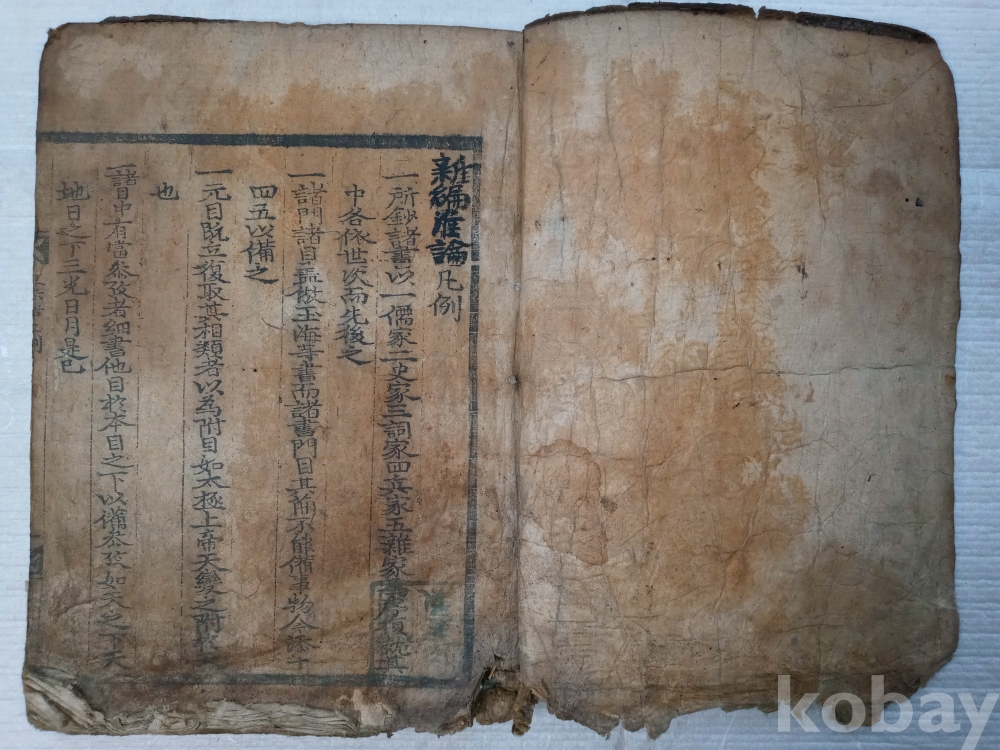 新編彙論凡例
一所鈔諸書以一儒家二史家三詞家四兵家五雜家
中各依世次而先後之
一諸門諸目盖倣玉海等書而諸書門目其簡不能備事物今添十
四五以備之
一元目旣立復取其相類者以爲附目如太極上帝天變之附
也
一諸目中有當叅攷者細書他目於本目之下以備叅攷如天之下天
地日之下三光日月是已
kobay